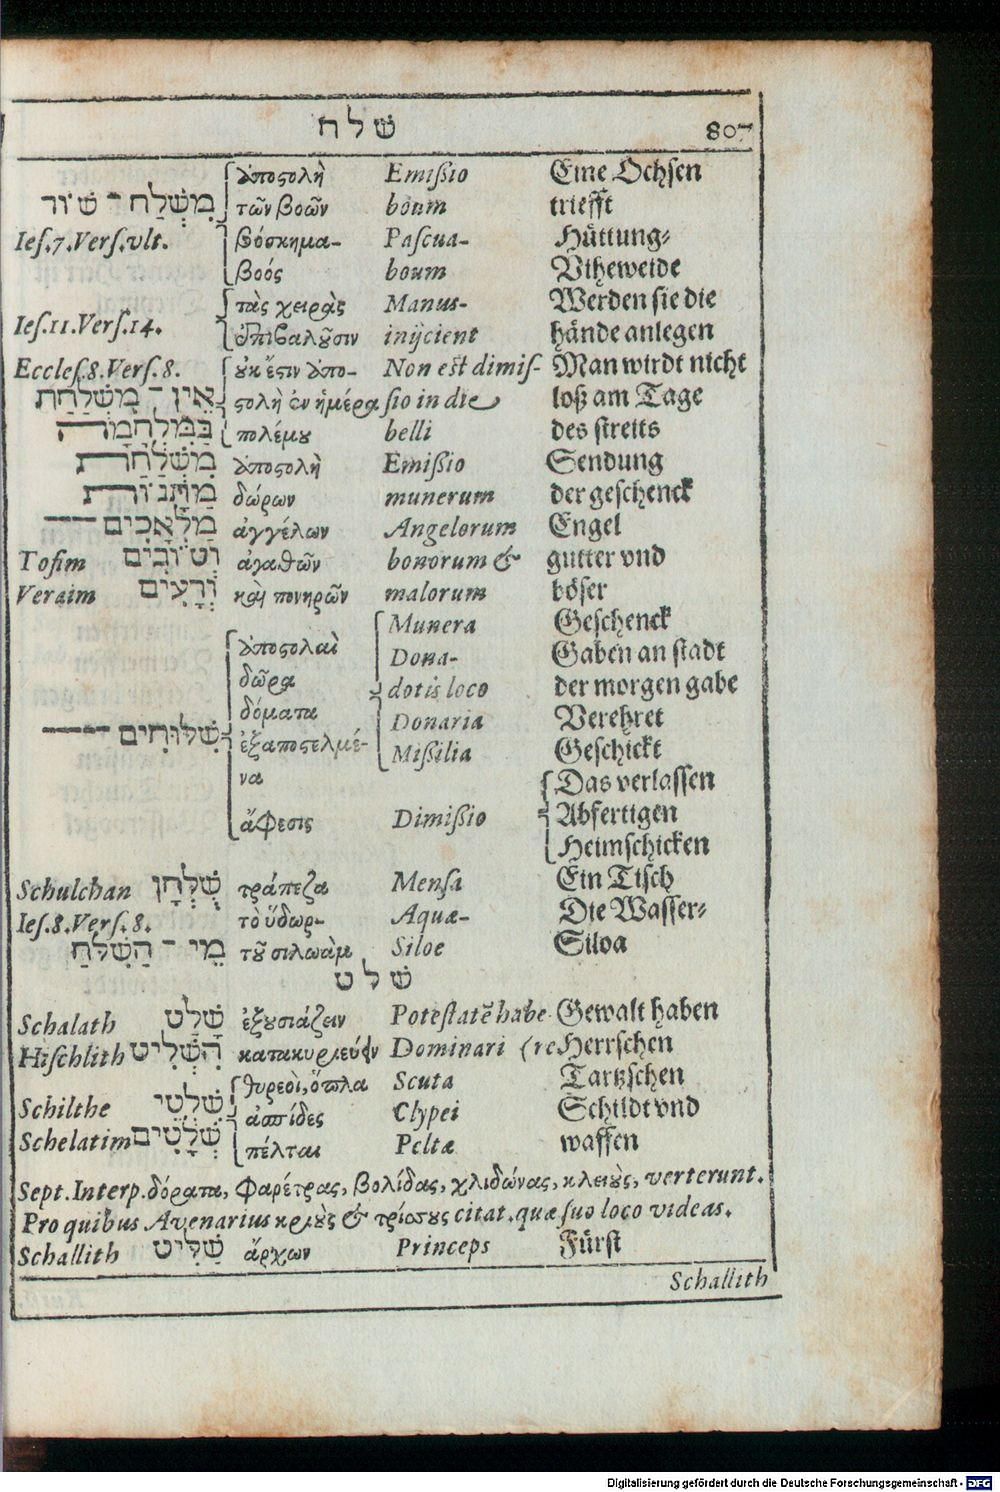 שלח 807
ἀποστολὴ Emißio Eine Ochsen
מִשְׁלַח־שׁוֹר τῶν βοῶν boum triefft
Ies.7.Vers.vlt. βόσκημα- Pascua- Hüttung-
βοός boum Viheweide
τὰς χειρὰς Manus- Werden sie die
Ies.11.Vers.14. ἐπιβαλοῦσιν inijcient hände anlegen
Eccles.8.Vers.8. ὐκ ἔστιν ἀπο- Non est dimis- Man wirdt nicht
אֵין־מִשְׁלַחַת στολὴ ἐν ἡμέρα sio in die loß am Tage
בַּמִּלְחָמָה πολέμου belli des streits
מִשְׁלַחַת ἀποστολὴ Emißio Sendung
δώρων munerum der geschenck
מַלְאָכִים ἀγγέλων Angelorum Engel
Tofim וְטוֹבִים ἀγαθῶν bonorum & gutter vnd
Veraim וְרָעִים καὶ πονηρῶν malorum böser
Munera Geschenck
ἀποστολαὶ Dona- Gaben an stadt
δῶρα dotis loco der morgen gabe
δόματα Donaria Verehret
שִׁלּוּחִים ἐξαποστελμέ- Mißilia Geschickt
να Das verlassen
ἄφεσις Dimißio Abfertigen
Heimschicken
Schulchan שֻׁלְחָן τράπεζα Mensa Ein Tisch
Ies.8.Vers.8. τὸ ὕδωρ- Aquæ- Die Wasser-
מֵי־הַשִּׁלֹחַ τοῦ σιλωὰμ Siloe Siloa
שלט
Schalath שָׁלַט ἐξουσιάζειν Potestatē habe Gewalt haben
Hischlith הִשְׁלִיט κατακυριεύειν Dominari (re Herrschen
θυρεοὶ, ὅπλα Scuta Tartzschen
Schilthe שִׁלְטֵי ἀσπίδες Clypei Schildt vnd
Schelatim שְׁלָטִים πέλται Peltæ waffen
Sept.Interp.δόρατα, φαρέτρας, βολίδας, χλιδώνας, κλειοὺς, verterunt.
Pro quibus Avenarius κριοὺς & τρίσσους citat.quæ suo loco videas.
Schallith שַׁלִּיט ἄρχων Princeps Fürst
Schallith
Digitalisierung gefördert durch die Deutsche Forschungsgemeinschaft - DFG